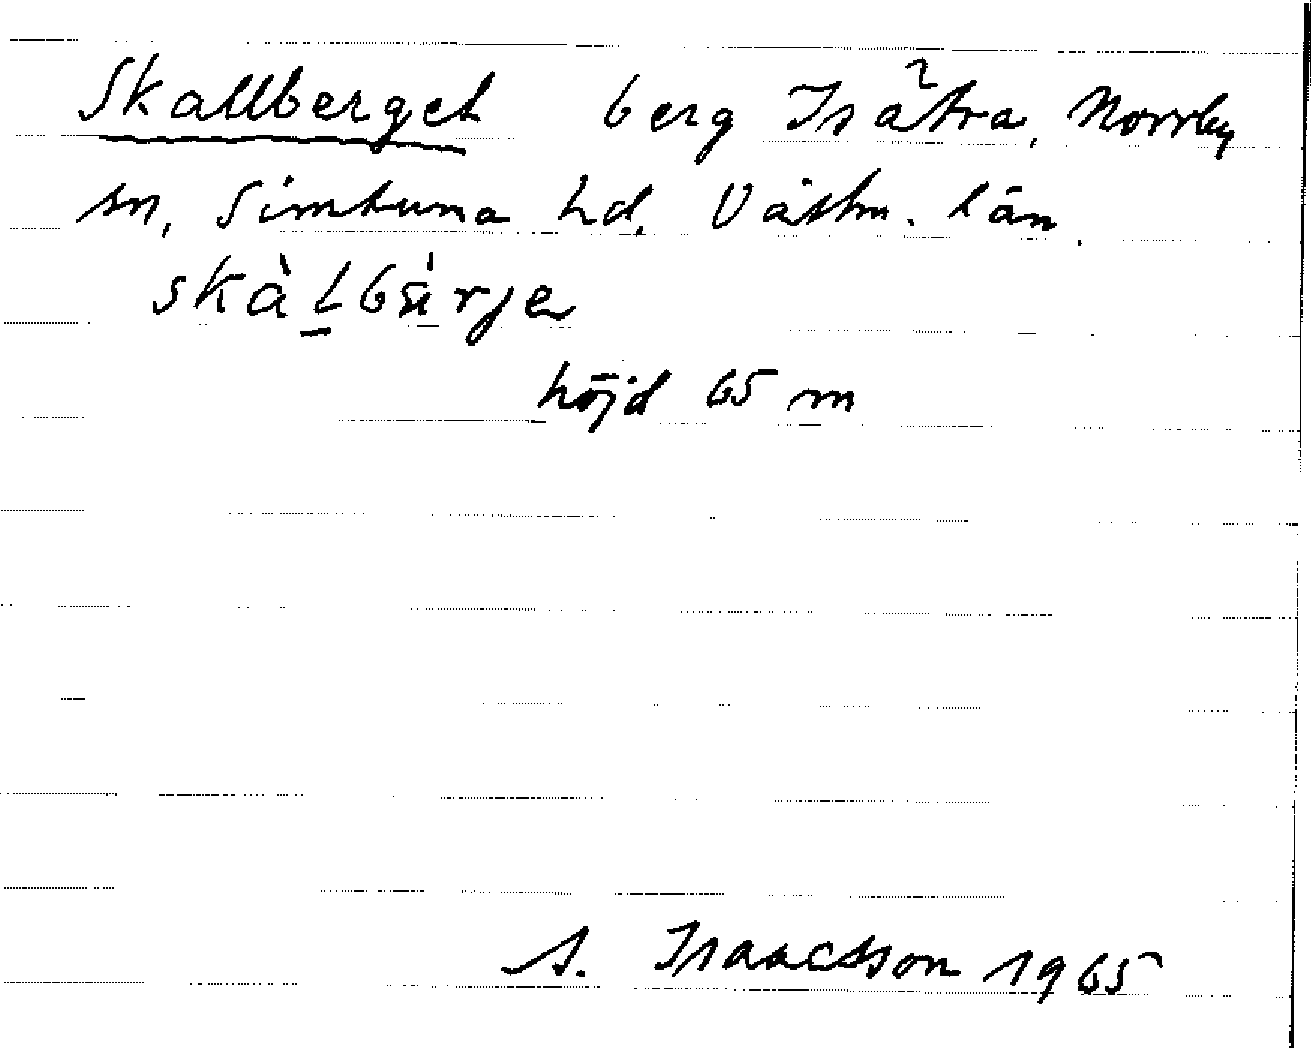 Skallberget berg Isätra, Norrby
sn, Simtuna hd, Västm. län.
skàlbä́rje
höjd 65 m
A. Isaacsson 1965